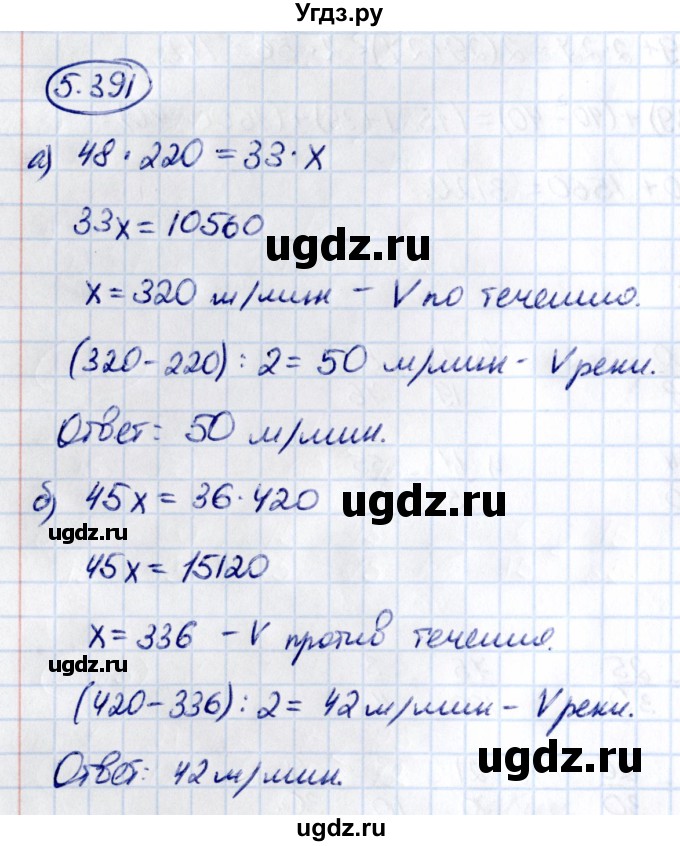 Угдз.ру
5.391
а) 48 · 220 = 33 · x
33x = 10560
ugdz.ru
x = 320 м/мин – V по течению.
(320 – 220) : 2 = 50 м/мин – V реки.
Ответ: 50 м/мин.
б) 45x = 36 · 420
ugdz.ru
ugdz.ru
45x = 15120
x = 336 – V против течения.
ugdz.ru
(420 – 336) : 2 = 42 м/мин – V реки.
ugdz.ru
Ответ: 42 м/мин.
ugdz.ru